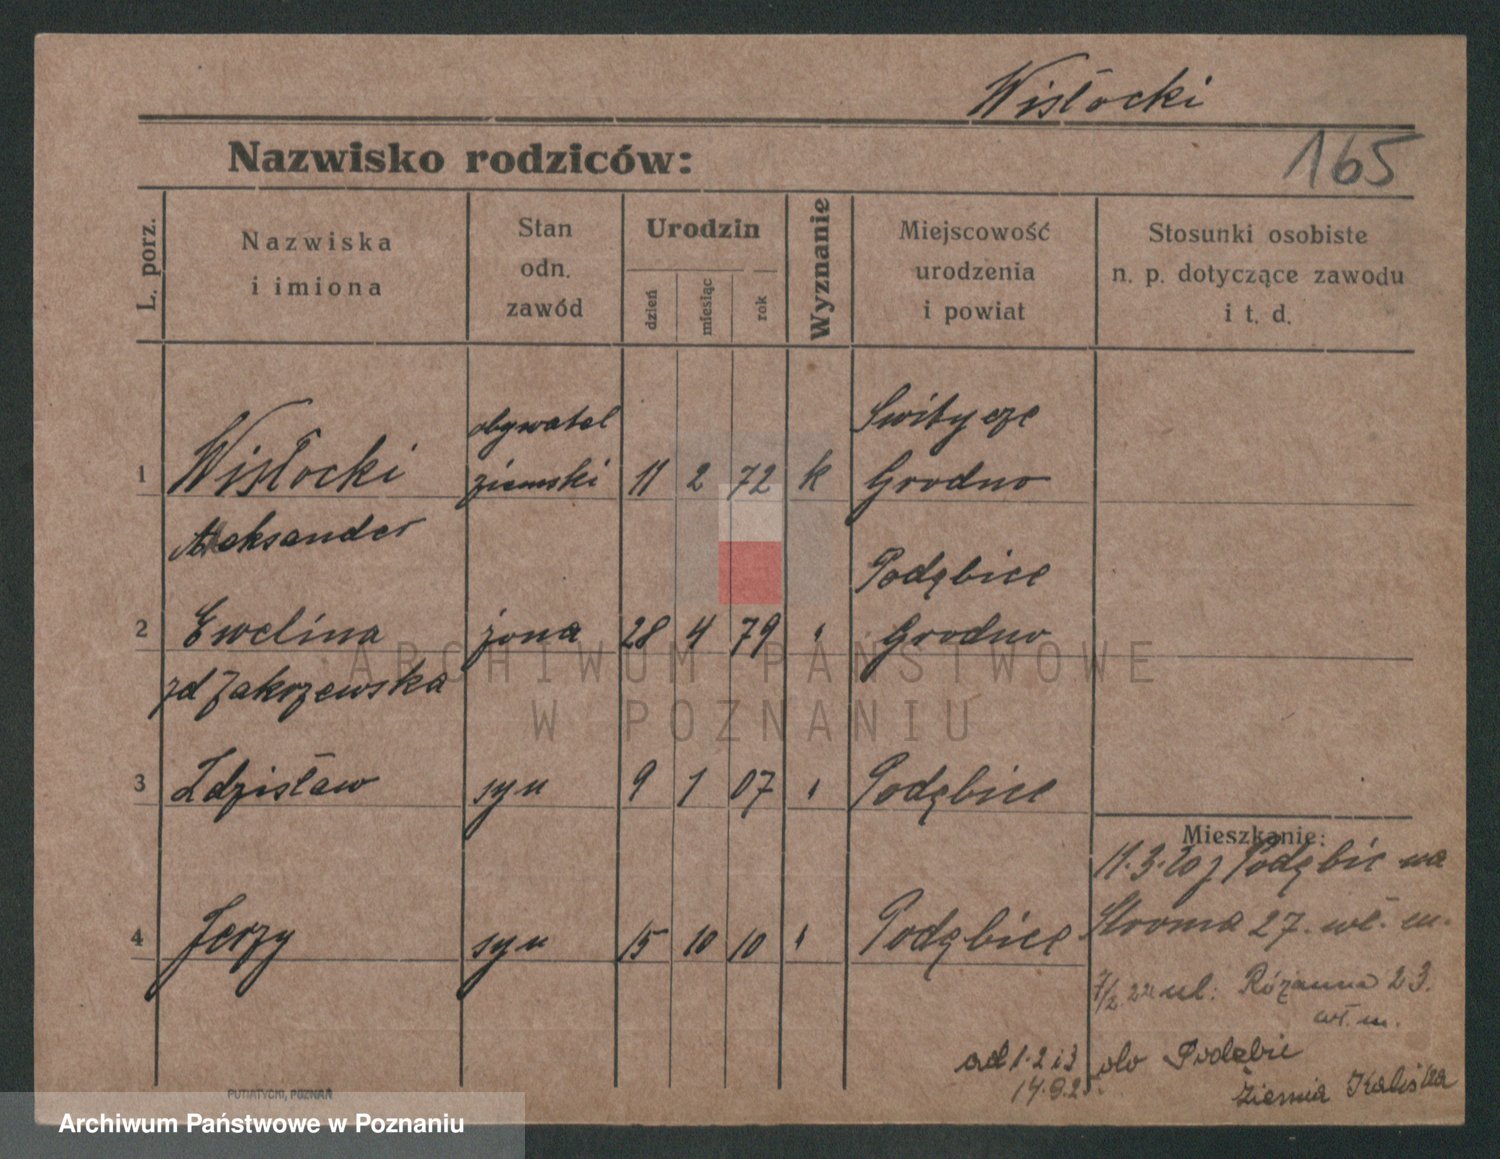 Wisłocki
Nazwisko rodziców:
165
L. porz.
Nazwiska
i imiona
Stan
odn.
zawód
Urodzin
dzień
miesiąc
rok
Wyznanie
Miejscowość
urodzenia
i powiat
Stosunki osobiste
n. p. dotyczące zawodu
i t. d.
obywatel Switycze
1 Wisłocki ziemski 11 2 72 k Grodno
Aleksander
Podębice
2 Ewelina żona 28 4 79 " Grodno
zd Zakrzewska
3 Zdzisław syn 9 1 07 " Podębice
4 Jerzy syn 15 10 10 " Podębice
Mieszkanie:
11.3.20 z Podębic na
Stroma 27. wł. m.
7/2.24 ul: Różanna 23.
wł. m.
ad 1.2 i 3 do Podębic
14.9.25. Ziemia Kaliska
PUTIATYCKI, POZNAŃ
ARCHIWUM PAŃSTWOWE
W POZNANIU
Archiwum Państwowe w Poznaniu